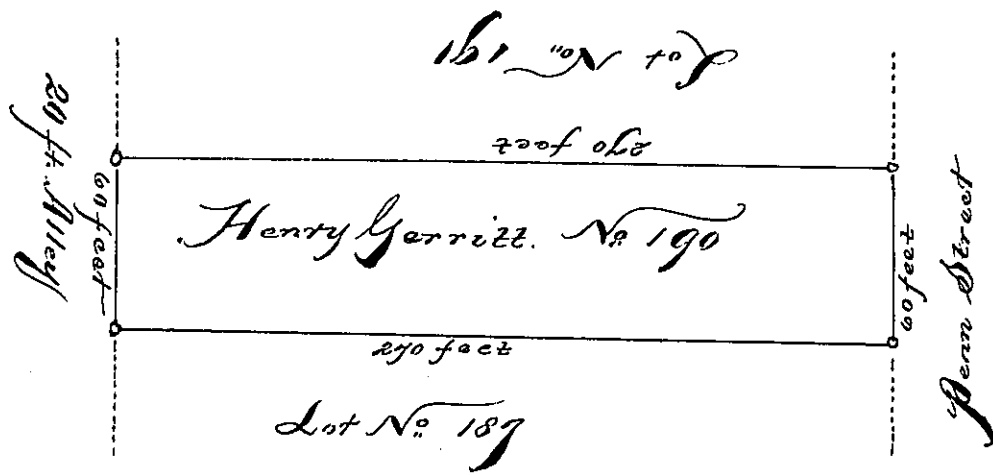 Lot No. 191
270 feet
20 ft. Alley
60 feet
Henry Gerritt. No. 190
60 feet
Penn Street
270 feet
Lot No. 187